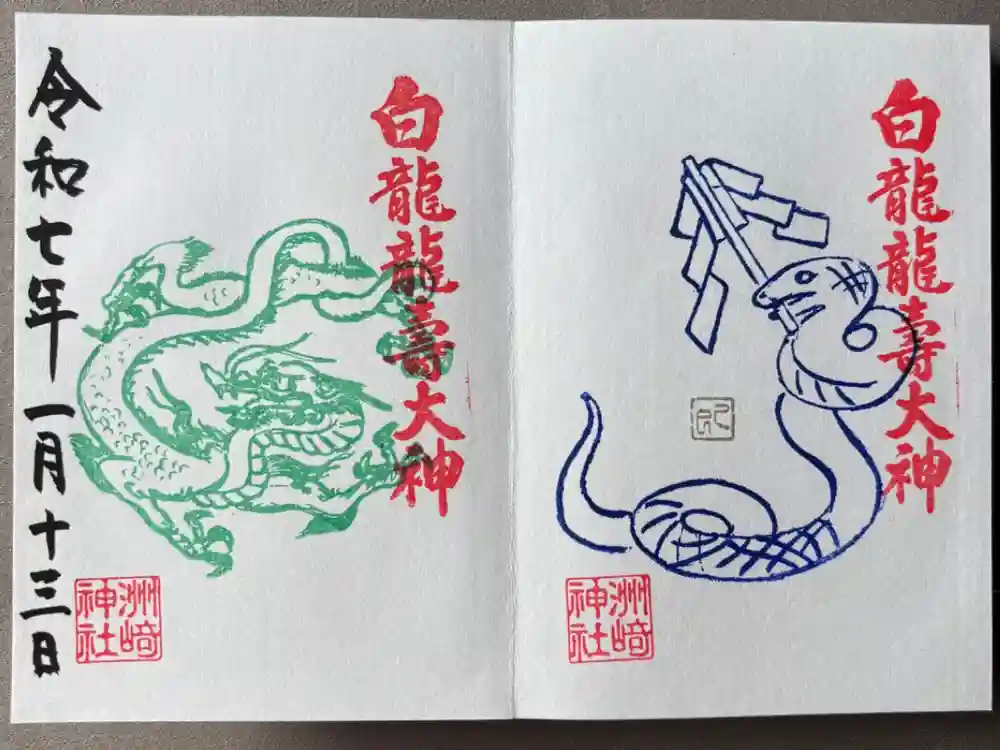 白龍龍壽大神
洲崎
神社
白龍龍壽大神
洲崎
神社
令和七年一月十三日